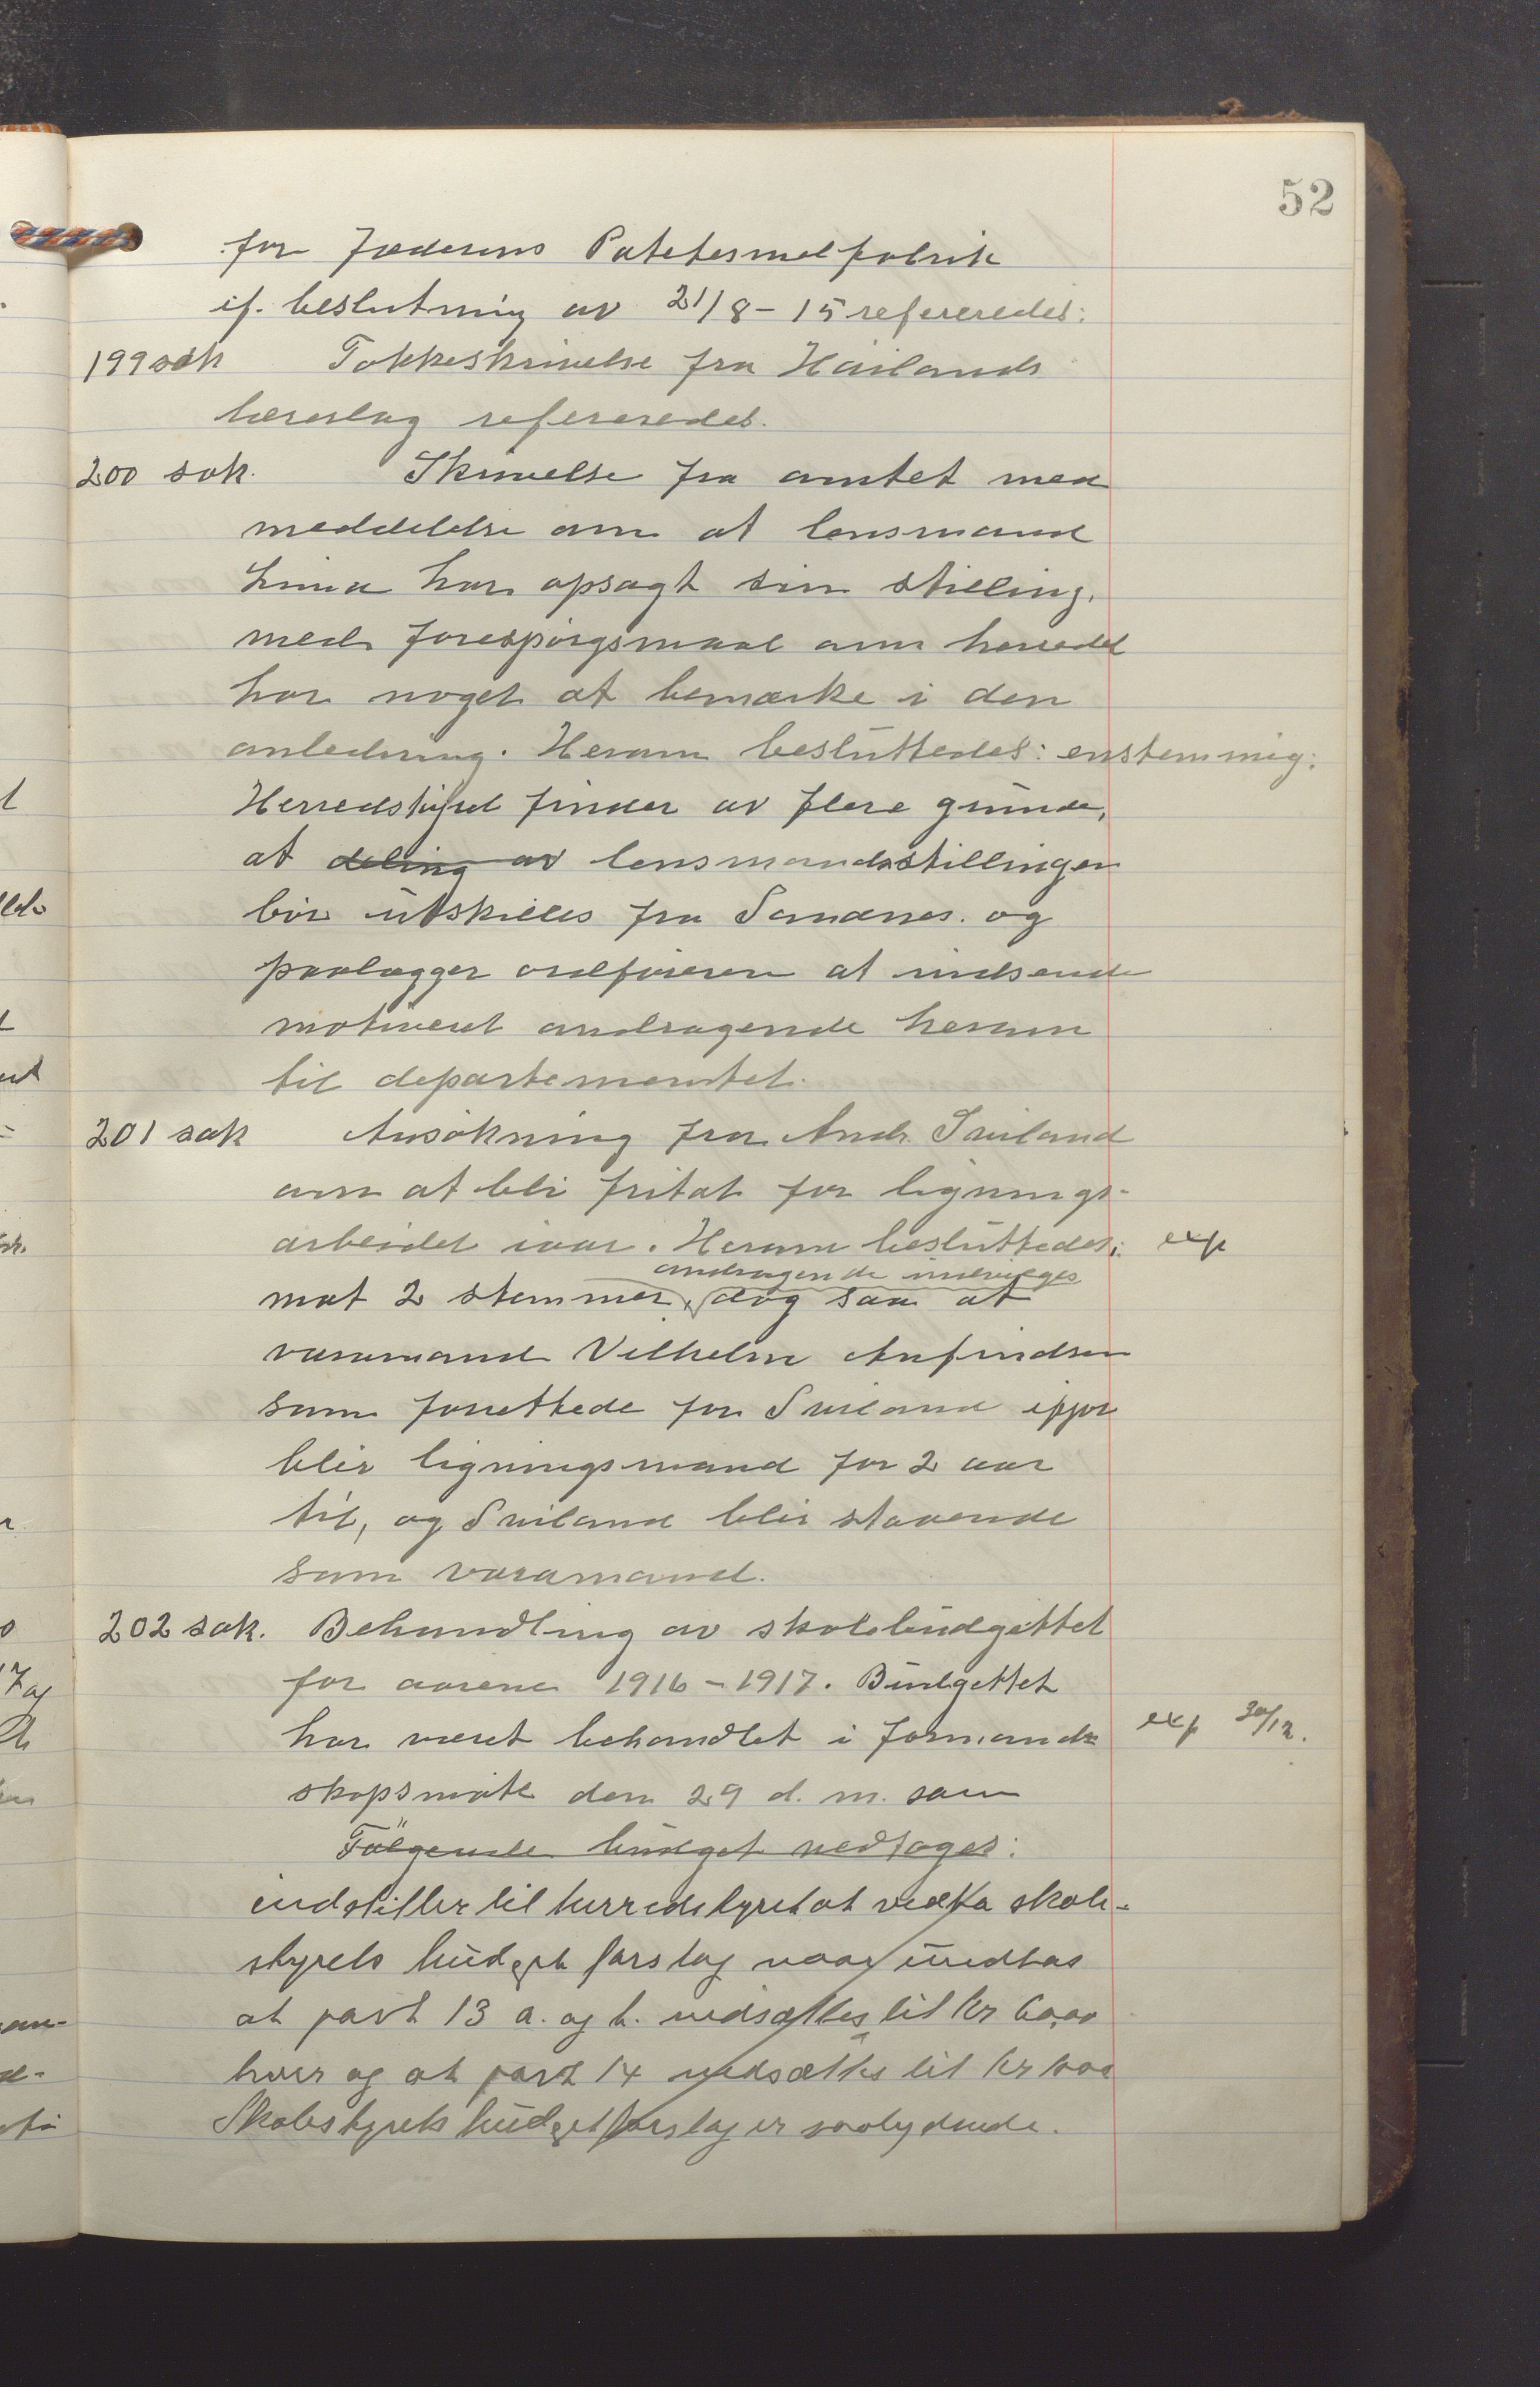 52
for Jæderens Potetesmelfabrik
if. beslutning av 21/8-15 refereredes:
199 sak Takkeskrivelse fra Håilands
lærerlag refereredes.
200 sak. Skrivelse fra amtet med
meddelelse om at lensmand
Lima har opsagt sin stilling.
med forespørgsmaal om herredet
har noget at bemærke i den
anledning. Herom besluttedes: enstemmig:
Herredstyret finder av flere grunde,
at deling av lensmandsstillingen
bør utskilles fra Sandnes. og
paalægger ordføreren at indsende
motiveret andragende herom
til departementet.
201 sak Ansøkning fra Andr. Sviland
om at bli fritat for lignings-
arbeidet iaar. Herom besluttedes: exp
andragende indvilges
mot 2 stemmer, dog saa at
varamand Vilhelm Anfindsen
som forrettede for Sviland ifjor
blir ligningsmand for 2 aar
til, og Sviland blir staaende
som varamand.
202 sak. Behandling av skolebudgettet
for aarene 1916-1917. Budgettet
har været behandlet i formand- exp 30/12.
skapsmøte den 29 d. m. som
Følgende budget vedtoges:
indstiller til herredstyret at vedta skole-
styrets budget forslag naar undtas
at post 13 a. og b. nedsættes til kr
hver og at post 14 nedsættes til kr
Skolestyrets budgetforslag er saalydende.